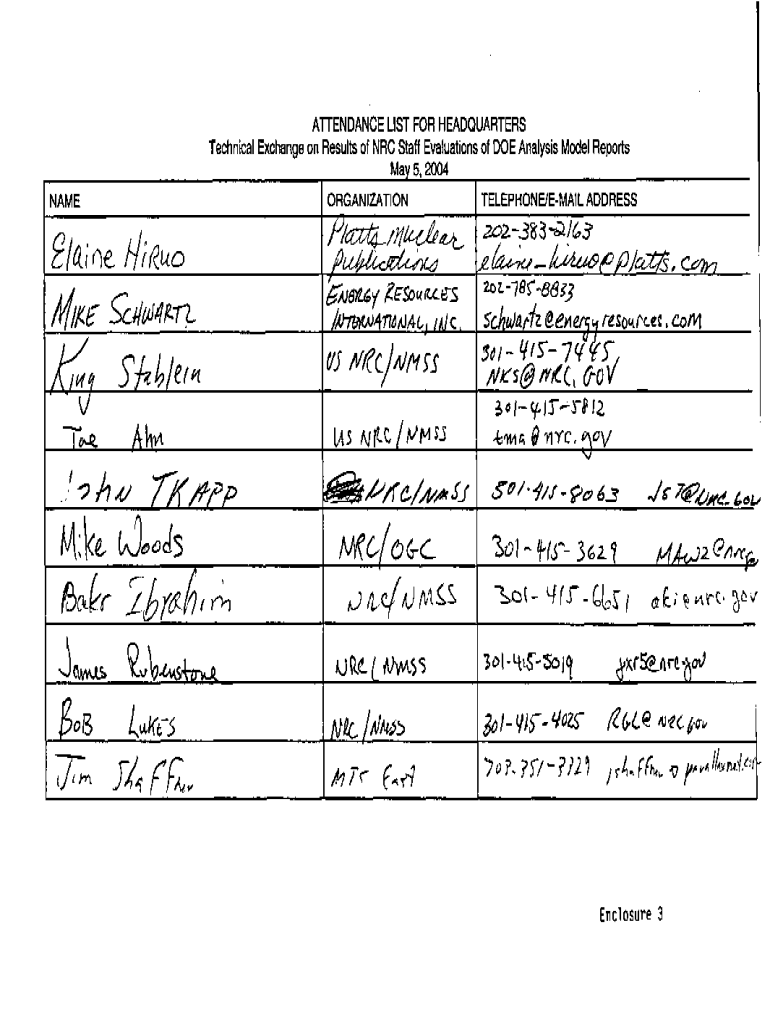 ATTENDANCE LIST FOR HEADQUARTERS
Technical Exchange on Results of NRC Staff Evaluations of DOE Analysis Model Reports
May 5, 2004
NAME ORGANIZATION TELEPHONE/E-MAIL ADDRESS
Elaine Hiruo Platts Nuclear Publications 202-383-2163 elaine_hiruo@platts.com
MIKE SCHWARTZ ENERGY RESOURCES INTERNATIONAL, INC. 202-785-8833 schwartz@energyresources.com
King Stablein US NRC/NMSS 301-415-7445 NKS@NRC.GOV
Tae Ahn US NRC/NMSS 301-415-5812 tma@nrc.gov
John TRAPP NRC/NMSS 501-415-8063 JST@NRC.GOV
Mike Woods NRC/OGC 301-415-3629
Bakr Ibrahim NRC/NMSS 301-415-6651
James Rubenstone NRC/NMSS 301-415-5019 jxr5@nrc.gov
BOB LUKES NRC/NMSS 301-415-4025 RGL@NRC.gov
Jim Shaffner MTS East
Enclosure 3